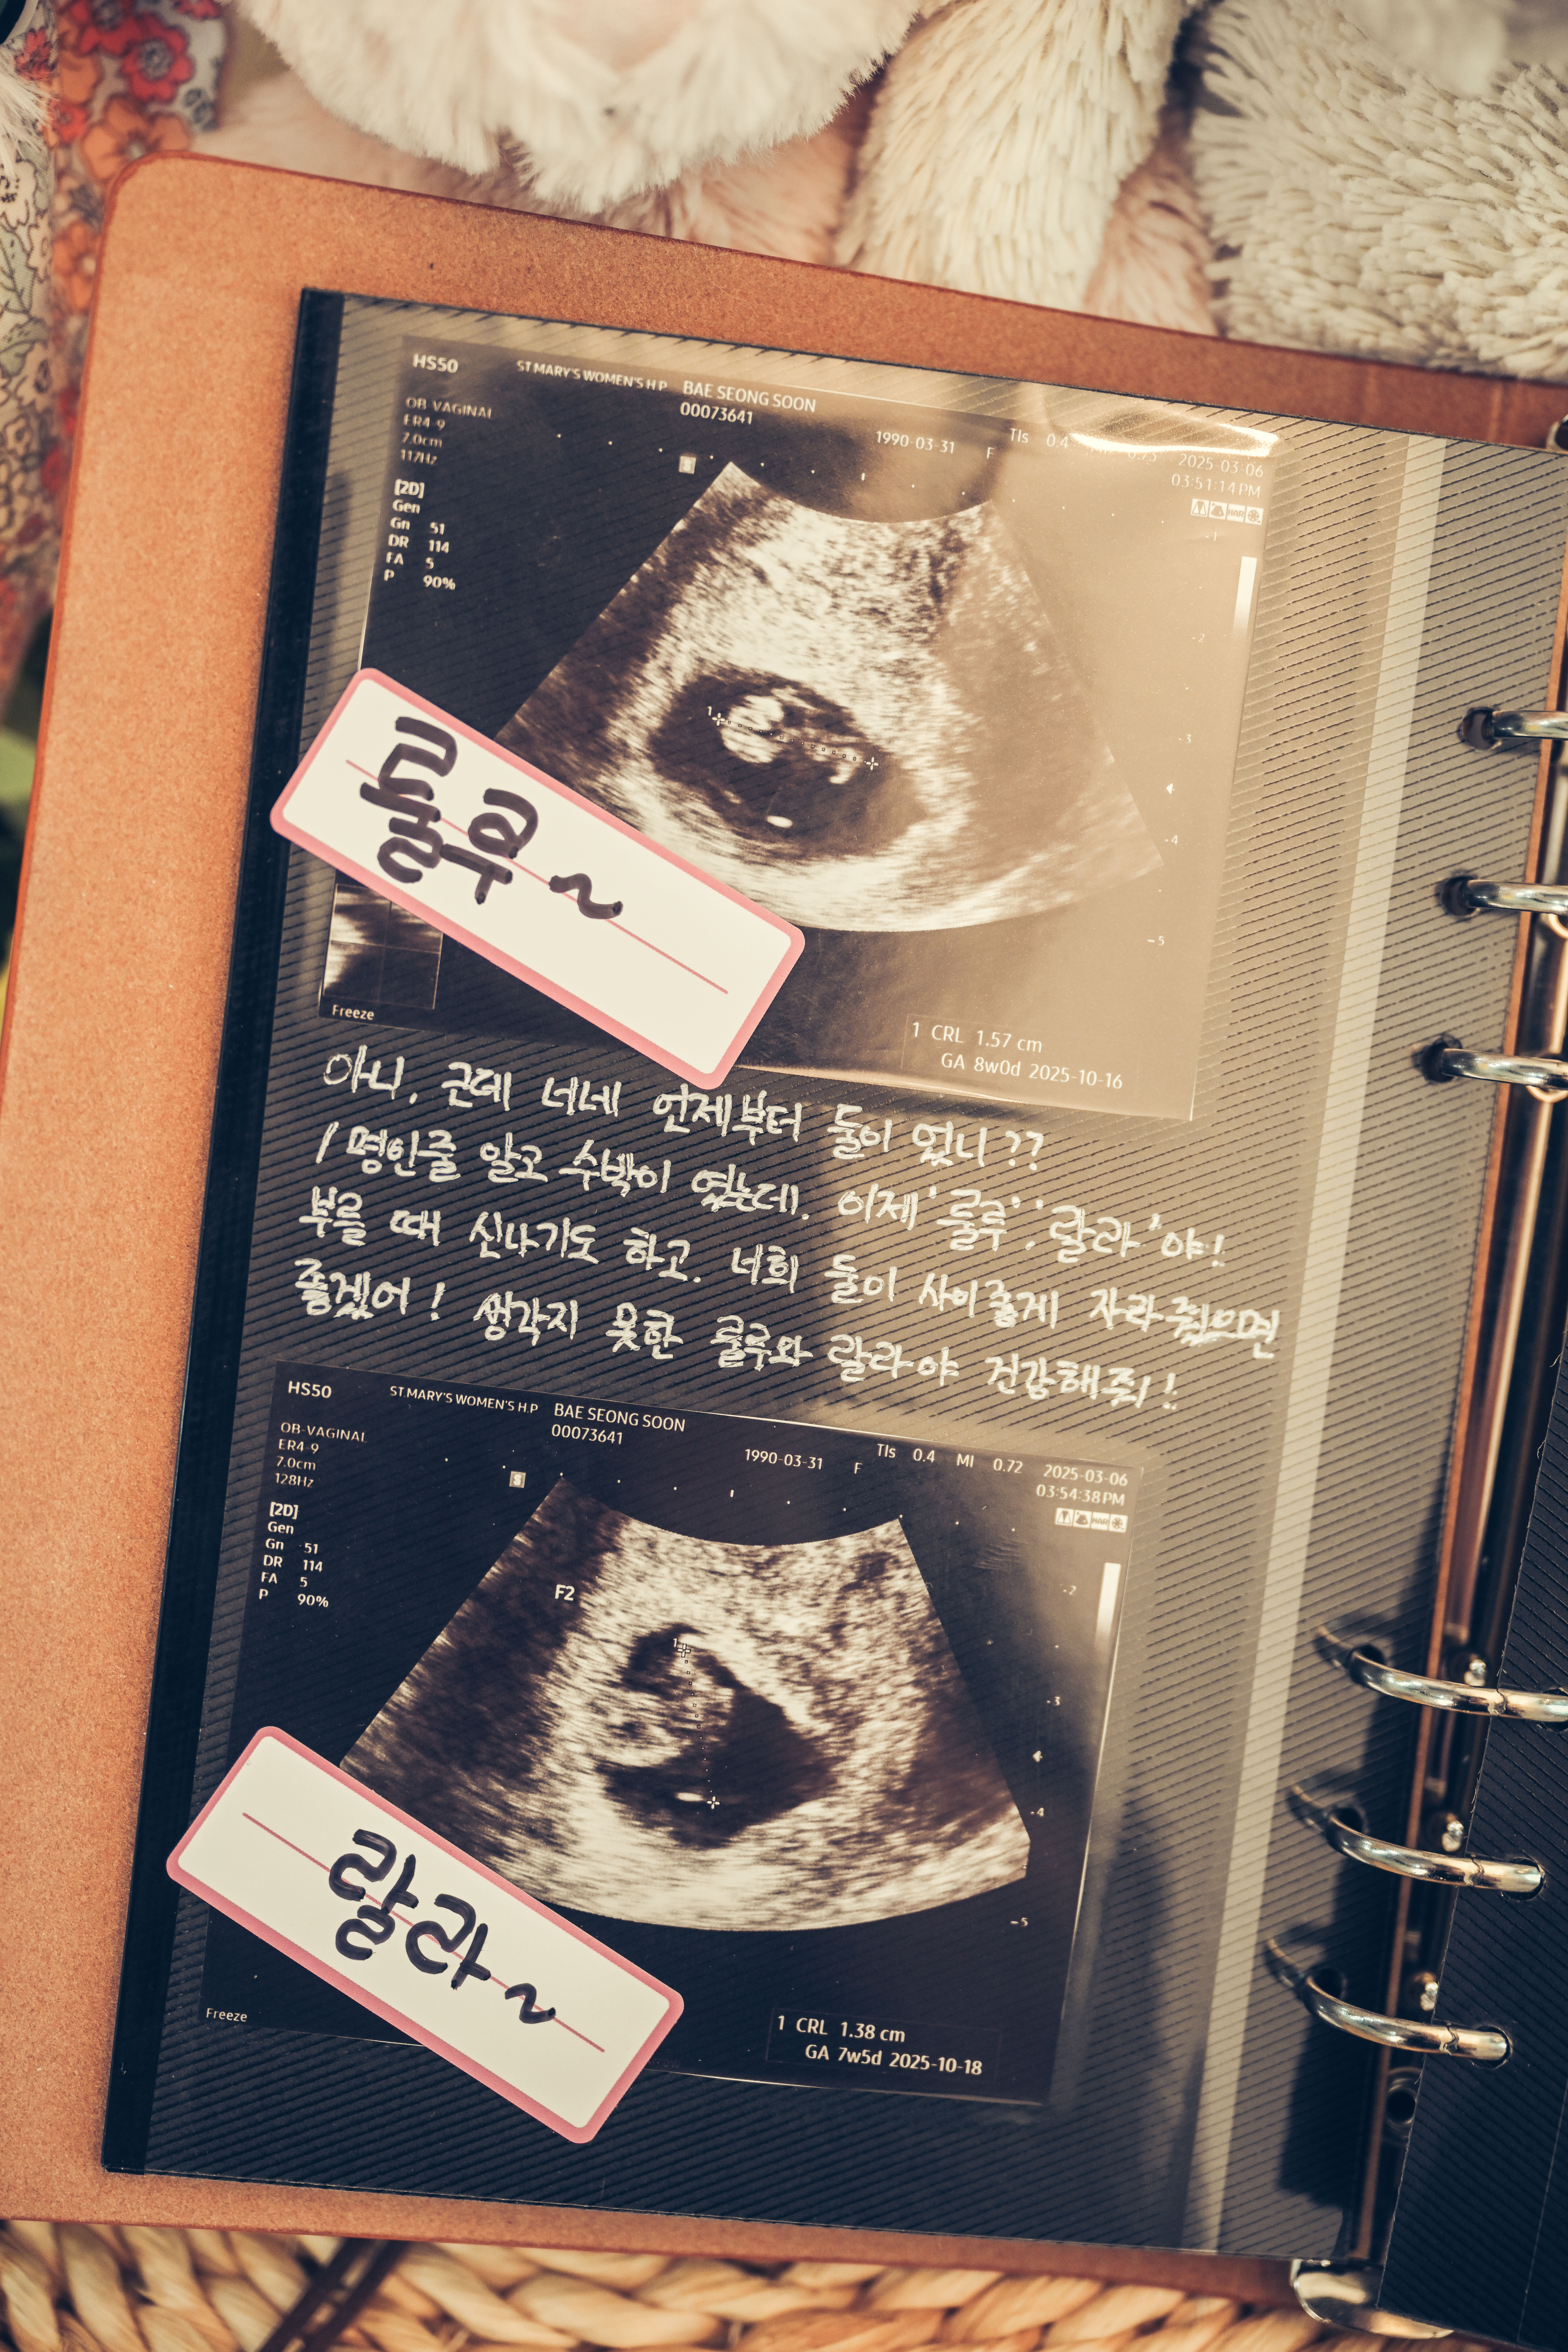 HS50 ST MARY'S WOMEN'S H.P BAE SEONG SOON
00073641
1990-03-31 F TIs 0.4 2025-03-06
03:51:14 PM
OB-VAGINAL
ER4-9
7.0cm
117Hz
[2D]
Gen
Gn 51
DR 114
FA 5
P 90%
-1
-2
-3
-4
-5
1
룰루~
Freeze
1 CRL 1.57 cm
GA 8w0d 2025-10-16
아니, 근데 너네 언제부터 둘이 었니??
1명인줄 알고 수박이 였는데. 이제 '룰루', '랄라'야!
부를 때 신나기도 하고. 너희 둘이 사이좋게 자라줬으면
좋겠어! 생각지 못한 룰루와 랄라야 건강해줘!
HS50 ST MARY'S WOMEN'S H.P BAE SEONG SOON
00073641
1990-03-31 F TIs 0.4 MI 0.72 2025-03-06
03:54:38 PM
OB-VAGINAL
ER4-9
7.0cm
128Hz
[2D]
Gen
Gn 51
DR 114
FA 5
P 90%
F2
1
-2
-3
-4
-5
랄라~
Freeze
1 CRL 1.38 cm
GA 7w5d 2025-10-18